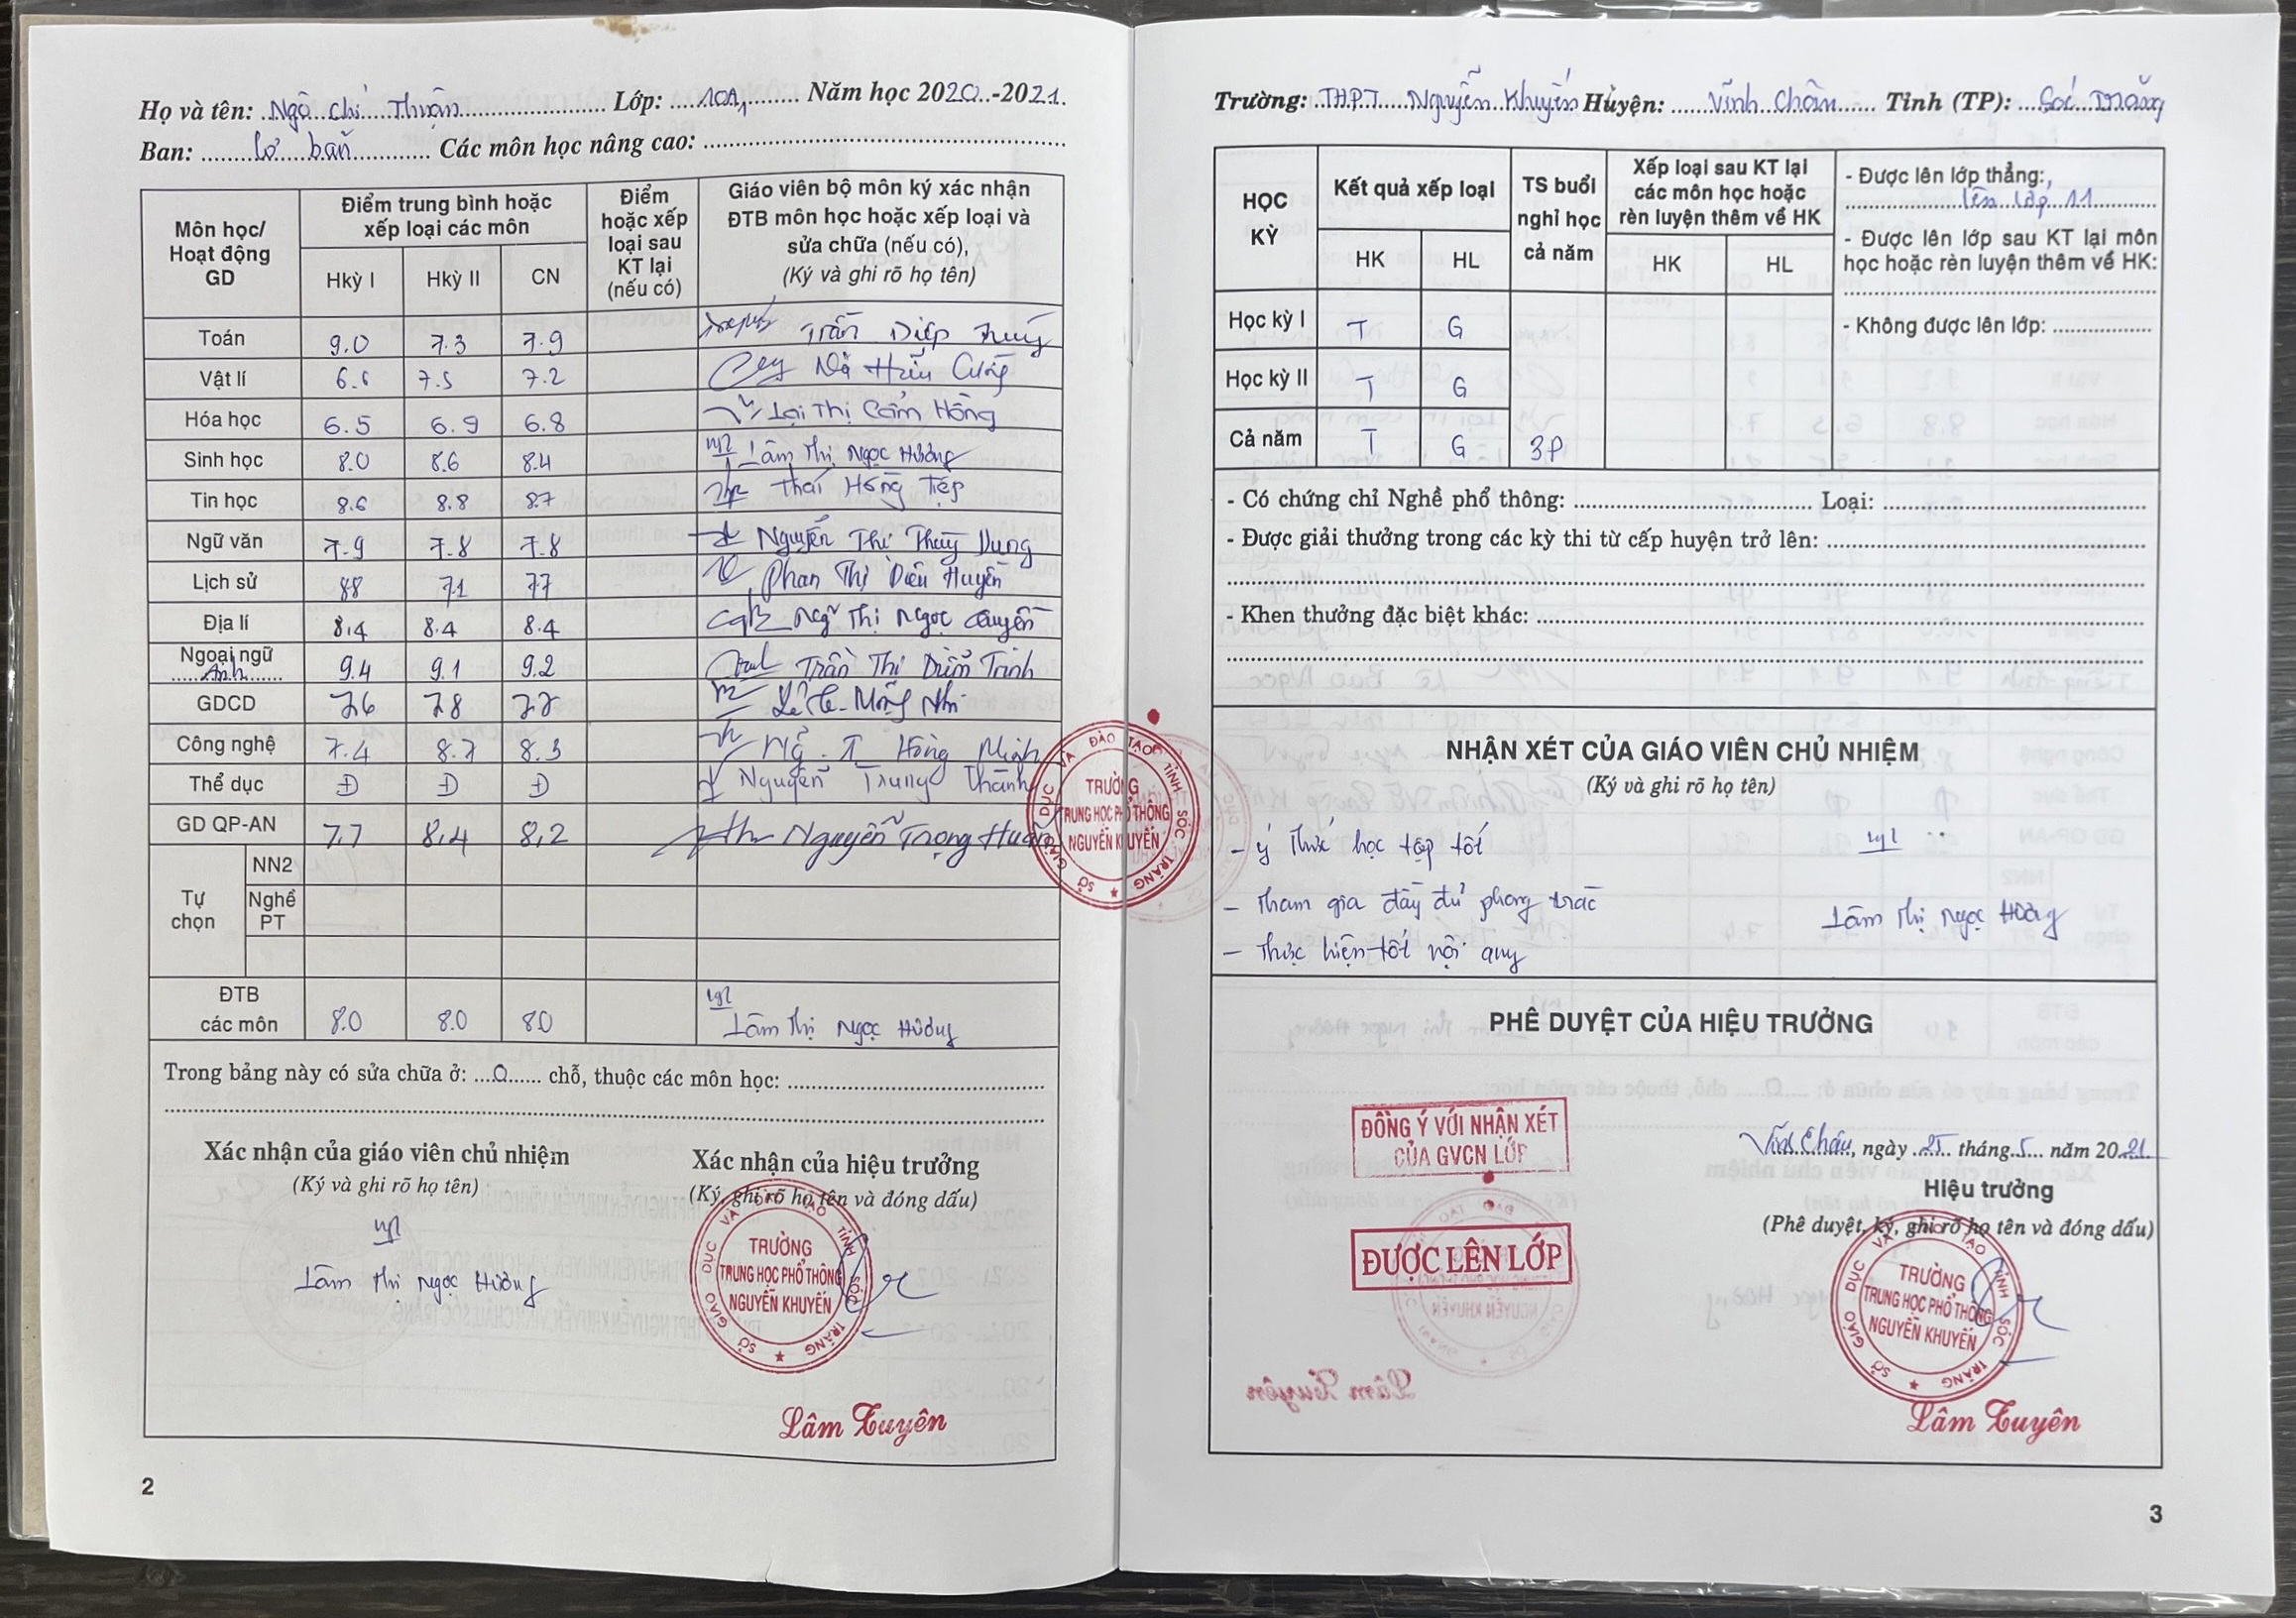 Họ và tên: Ngô Chí Thuận Lớp: 10A1 Năm học 2020-2021.
Ban: Cơ bản Các môn học nâng cao:
Môn học/ Hoạt động GD
Điểm trung bình hoặc xếp loại các môn
Hkỳ I Hkỳ II CN
Điểm hoặc xếp loại sau KT lại (nếu có)
Giáo viên bộ môn ký xác nhận ĐTB môn học hoặc xếp loại và sửa chữa (nếu có),
(Ký và ghi rõ họ tên)
Toán 9.0 7.3 7.9 Trần Diệp
Vật lí 6.6 7.5 7.2 Hữu
Hóa học 6.5 6.9 6.8 Lại Thị Cẩm Hồng
Sinh học 8.0 8.6 8.4 Lâm Thị Ngọc Hường
Tin học 8.6 8.8 8.7 Thái Hồng Tiếp
Ngữ văn 7.9 7.8 7.8 Nguyễn Thị Thùy Dung
Lịch sử 8.8 7.1 7.7 Phan Thị Diệu Huyền
Địa lí 8.4 8.4 8.4 Thị Ngọc Quyền
Ngoại ngữ
Anh 9.4 9.1 9.2 Trần Thị Diễm Trinh
GDCD 7.6 7.8 7.7 Mộng Nhi
Công nghệ 7.4 8.7 8.3 Hồng Minh
Thể dục Đ Đ Đ Nguyễn Trung Thành
GD QP-AN 7,7 8,4 8,2 Nguyễn Trọng
Tự chọn
NN2
Nghề PT
ĐTB
các môn 8.0 8.0 8.0 Lâm Thị Ngọc Hường
Trong bảng này có sửa chữa ở: 0 chỗ, thuộc các môn học:
Xác nhận của giáo viên chủ nhiệm
(Ký và ghi rõ họ tên)
Lâm Thị Ngọc Hường
Xác nhận của hiệu trưởng
(Ký, ghi rõ họ tên và đóng dấu)
SỞ GIÁO DỤC VÀ ĐÀO TẠO TỈNH SÓC TRĂNG
TRƯỜNG
TRUNG HỌC PHỔ THÔNG
NGUYỄN KHUYẾN
Lâm Tuyên
2
SỞ GIÁO DỤC VÀ ĐÀO TẠO TỈNH SÓC TRĂNG
TRƯỜNG
TRUNG HỌC PHỔ THÔNG
NGUYỄN KHUYẾN
Trường: THPT Nguyễn Khuyến Huyện: Vĩnh Châu Tỉnh (TP): Sóc Trăng
HỌC KỲ
Kết quả xếp loại
HK HL
TS buổi nghỉ học cả năm
Xếp loại sau KT lại các môn học hoặc rèn luyện thêm về HK
HK HL
- Được lên lớp thẳng:
lên lớp 11
- Được lên lớp sau KT lại môn
học hoặc rèn luyện thêm về HK:
- Không được lên lớp:
Học kỳ I T G
Học kỳ II T G
Cả năm T G 3P
- Có chứng chỉ Nghề phổ thông: Loại:
- Được giải thưởng trong các kỳ thi từ cấp huyện trở lên:
- Khen thưởng đặc biệt khác:
NHẬN XÉT CỦA GIÁO VIÊN CHỦ NHIỆM
(Ký và ghi rõ họ tên)
- Ý thức học tập tốt
- Tham gia đầy đủ phong trào
- Thực hiện tốt nội quy
Lâm Thị Ngọc Hường
PHÊ DUYỆT CỦA HIỆU TRƯỞNG
ĐỒNG Ý VỚI NHẬN XÉT
CỦA GVCN LỚP
ĐƯỢC LÊN LỚP
Vĩnh Châu, ngày 25 tháng 5 năm 2021
Hiệu trưởng
(Phê duyệt, ký, ghi rõ họ tên và đóng dấu)
SỞ GIÁO DỤC VÀ ĐÀO TẠO TỈNH SÓC TRĂNG
TRƯỜNG
TRUNG HỌC PHỔ THÔNG
NGUYỄN KHUYẾN
Lâm Tuyên
3